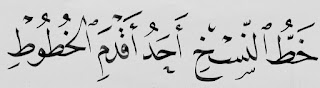 خَطُّ النَّسْخِ أَحَدُ أَقْدَمِ الخُطُوطِ